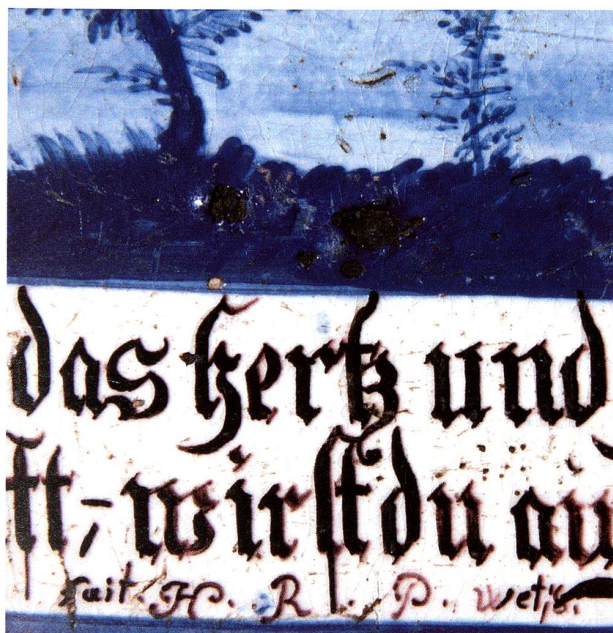 das hertz und
ft,- wirst du au
fait. H. R. P. Wetz.